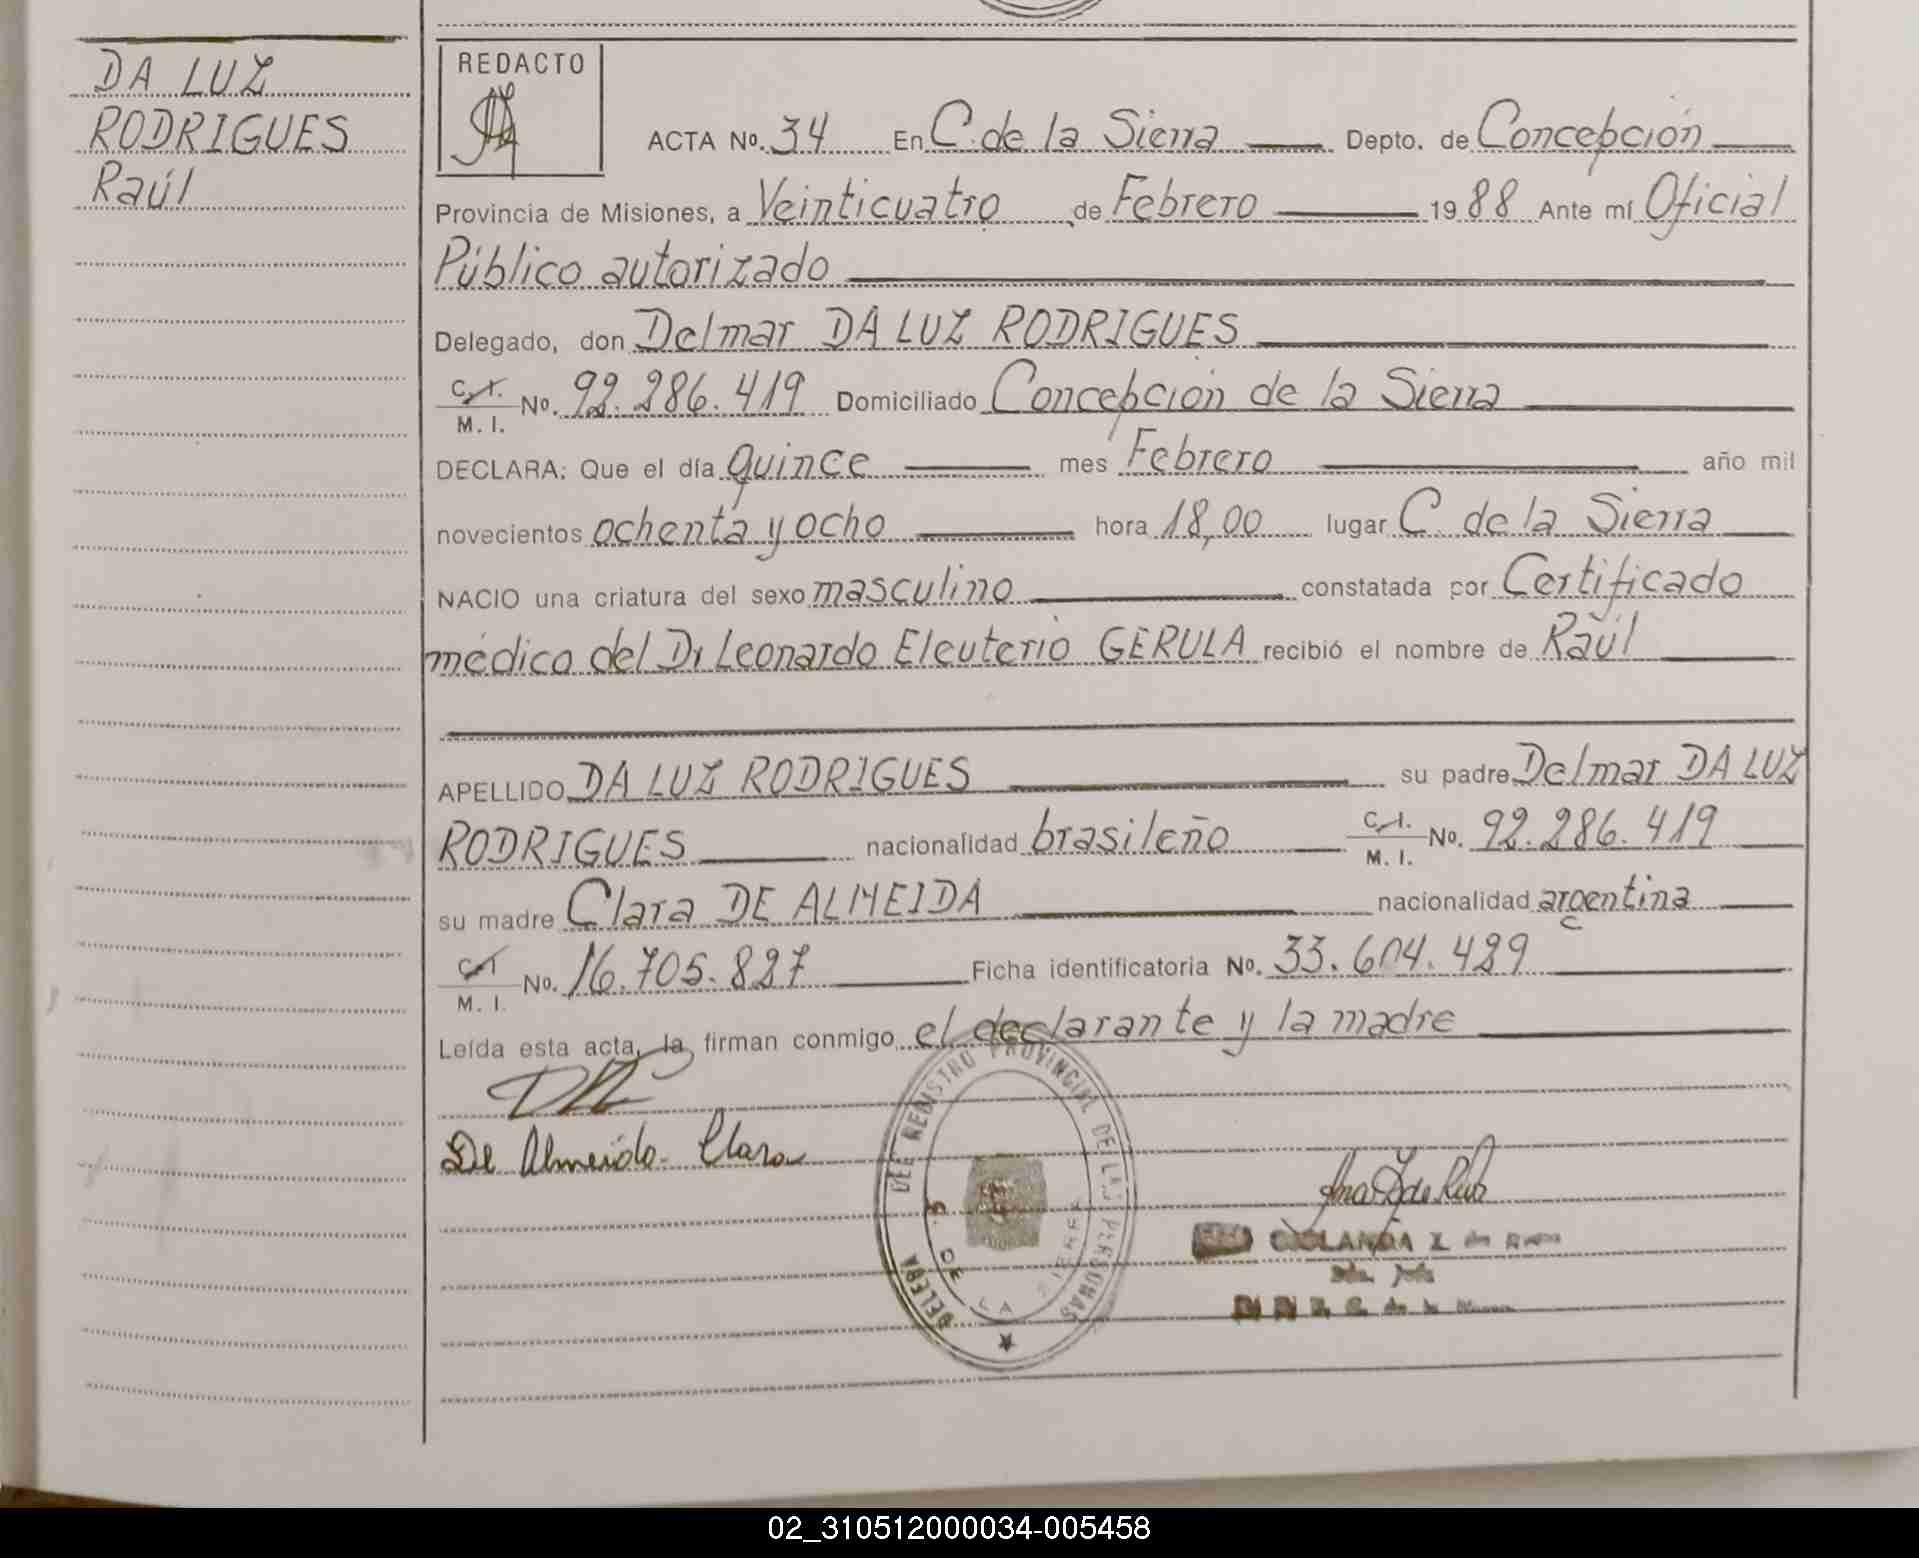 DA LUZ
RODRIGUES
Raúl
REDACTO
ACTA No. 34 En C. de la Sierra Depto. de Concepción
Provincia de Misiones, a Veinticuatro de Febrero 1988 Ante mí Oficial
Público autorizado
Delegado, don Delmar DA LUZ RODRIGUES
C. I.
M. I. No. 92.286.419 Domiciliado Concepción de la Sierra
DECLARA: Que el día quince mes Febrero año mil
novecientos ochenta y ocho hora 18,00 lugar C. de la Sierra
NACIO una criatura del sexo masculino constatada por Certificado
médico del Dr Leonardo Eleuterio GERULA recibió el nombre de Raúl
APELLIDO DA LUZ RODRIGUES su padre Delmar DA LUZ
RODRIGUES nacionalidad brasileño C. I. M. I. No. 92.286.419
su madre Clara DE ALMEIDA nacionalidad argentina
C. I. M. I. No. 16.705.827 Ficha identificatoria No. 33.604.429
Leída esta acta, la firman conmigo el declarante y la madre
De Almeida Clara
DEL REGISTRO PROVINCIAL DE LAS PERSONAS
C. DE LA SIERRA
02_310512000034-005458